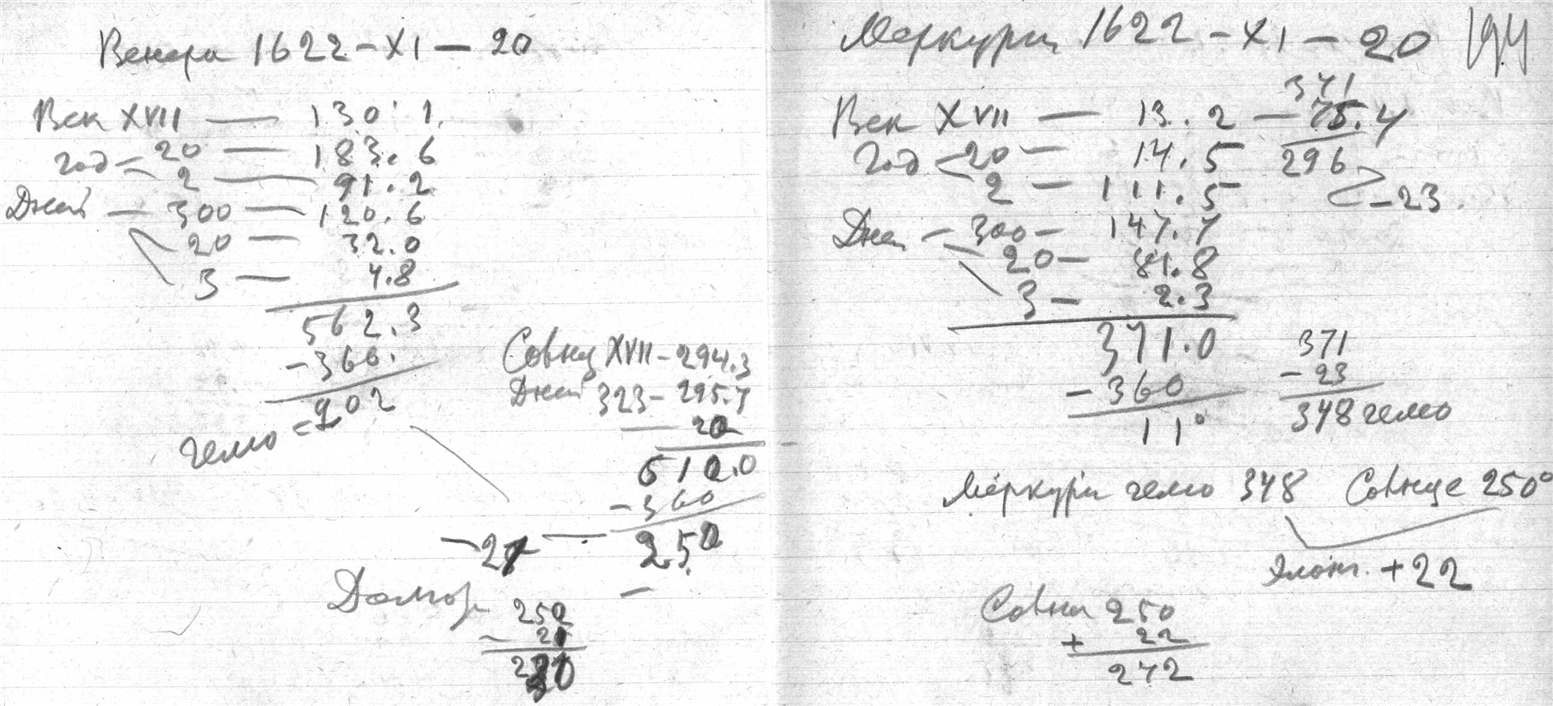 Венера 1622-XI-20
Век XVII — 130.1
год - 20 — 183.6
2 — 91.2
Дней — 300 — 120.6
20 — 32.0
3 — 4.8
562.3
-360.
гелио = 202
Солнц XVII - 294.3
Дней 323 - 295.7
20
610.0
-360
-21 — 250
250
- 21
Меркурий 1622-XI-20 194
Век XVII — 13.2 — 75.4
371
296
-23
Год - 20 — 14.5
2 — 111.5
Дней - 300 — 147.7
20 — 81.8
3 — 2.3
371.0
-360
11°
371
-23
348 гелио
Меркурий гелио 348 Солнце 250°
Элонг. +22
Солнц 250
+ 22
272